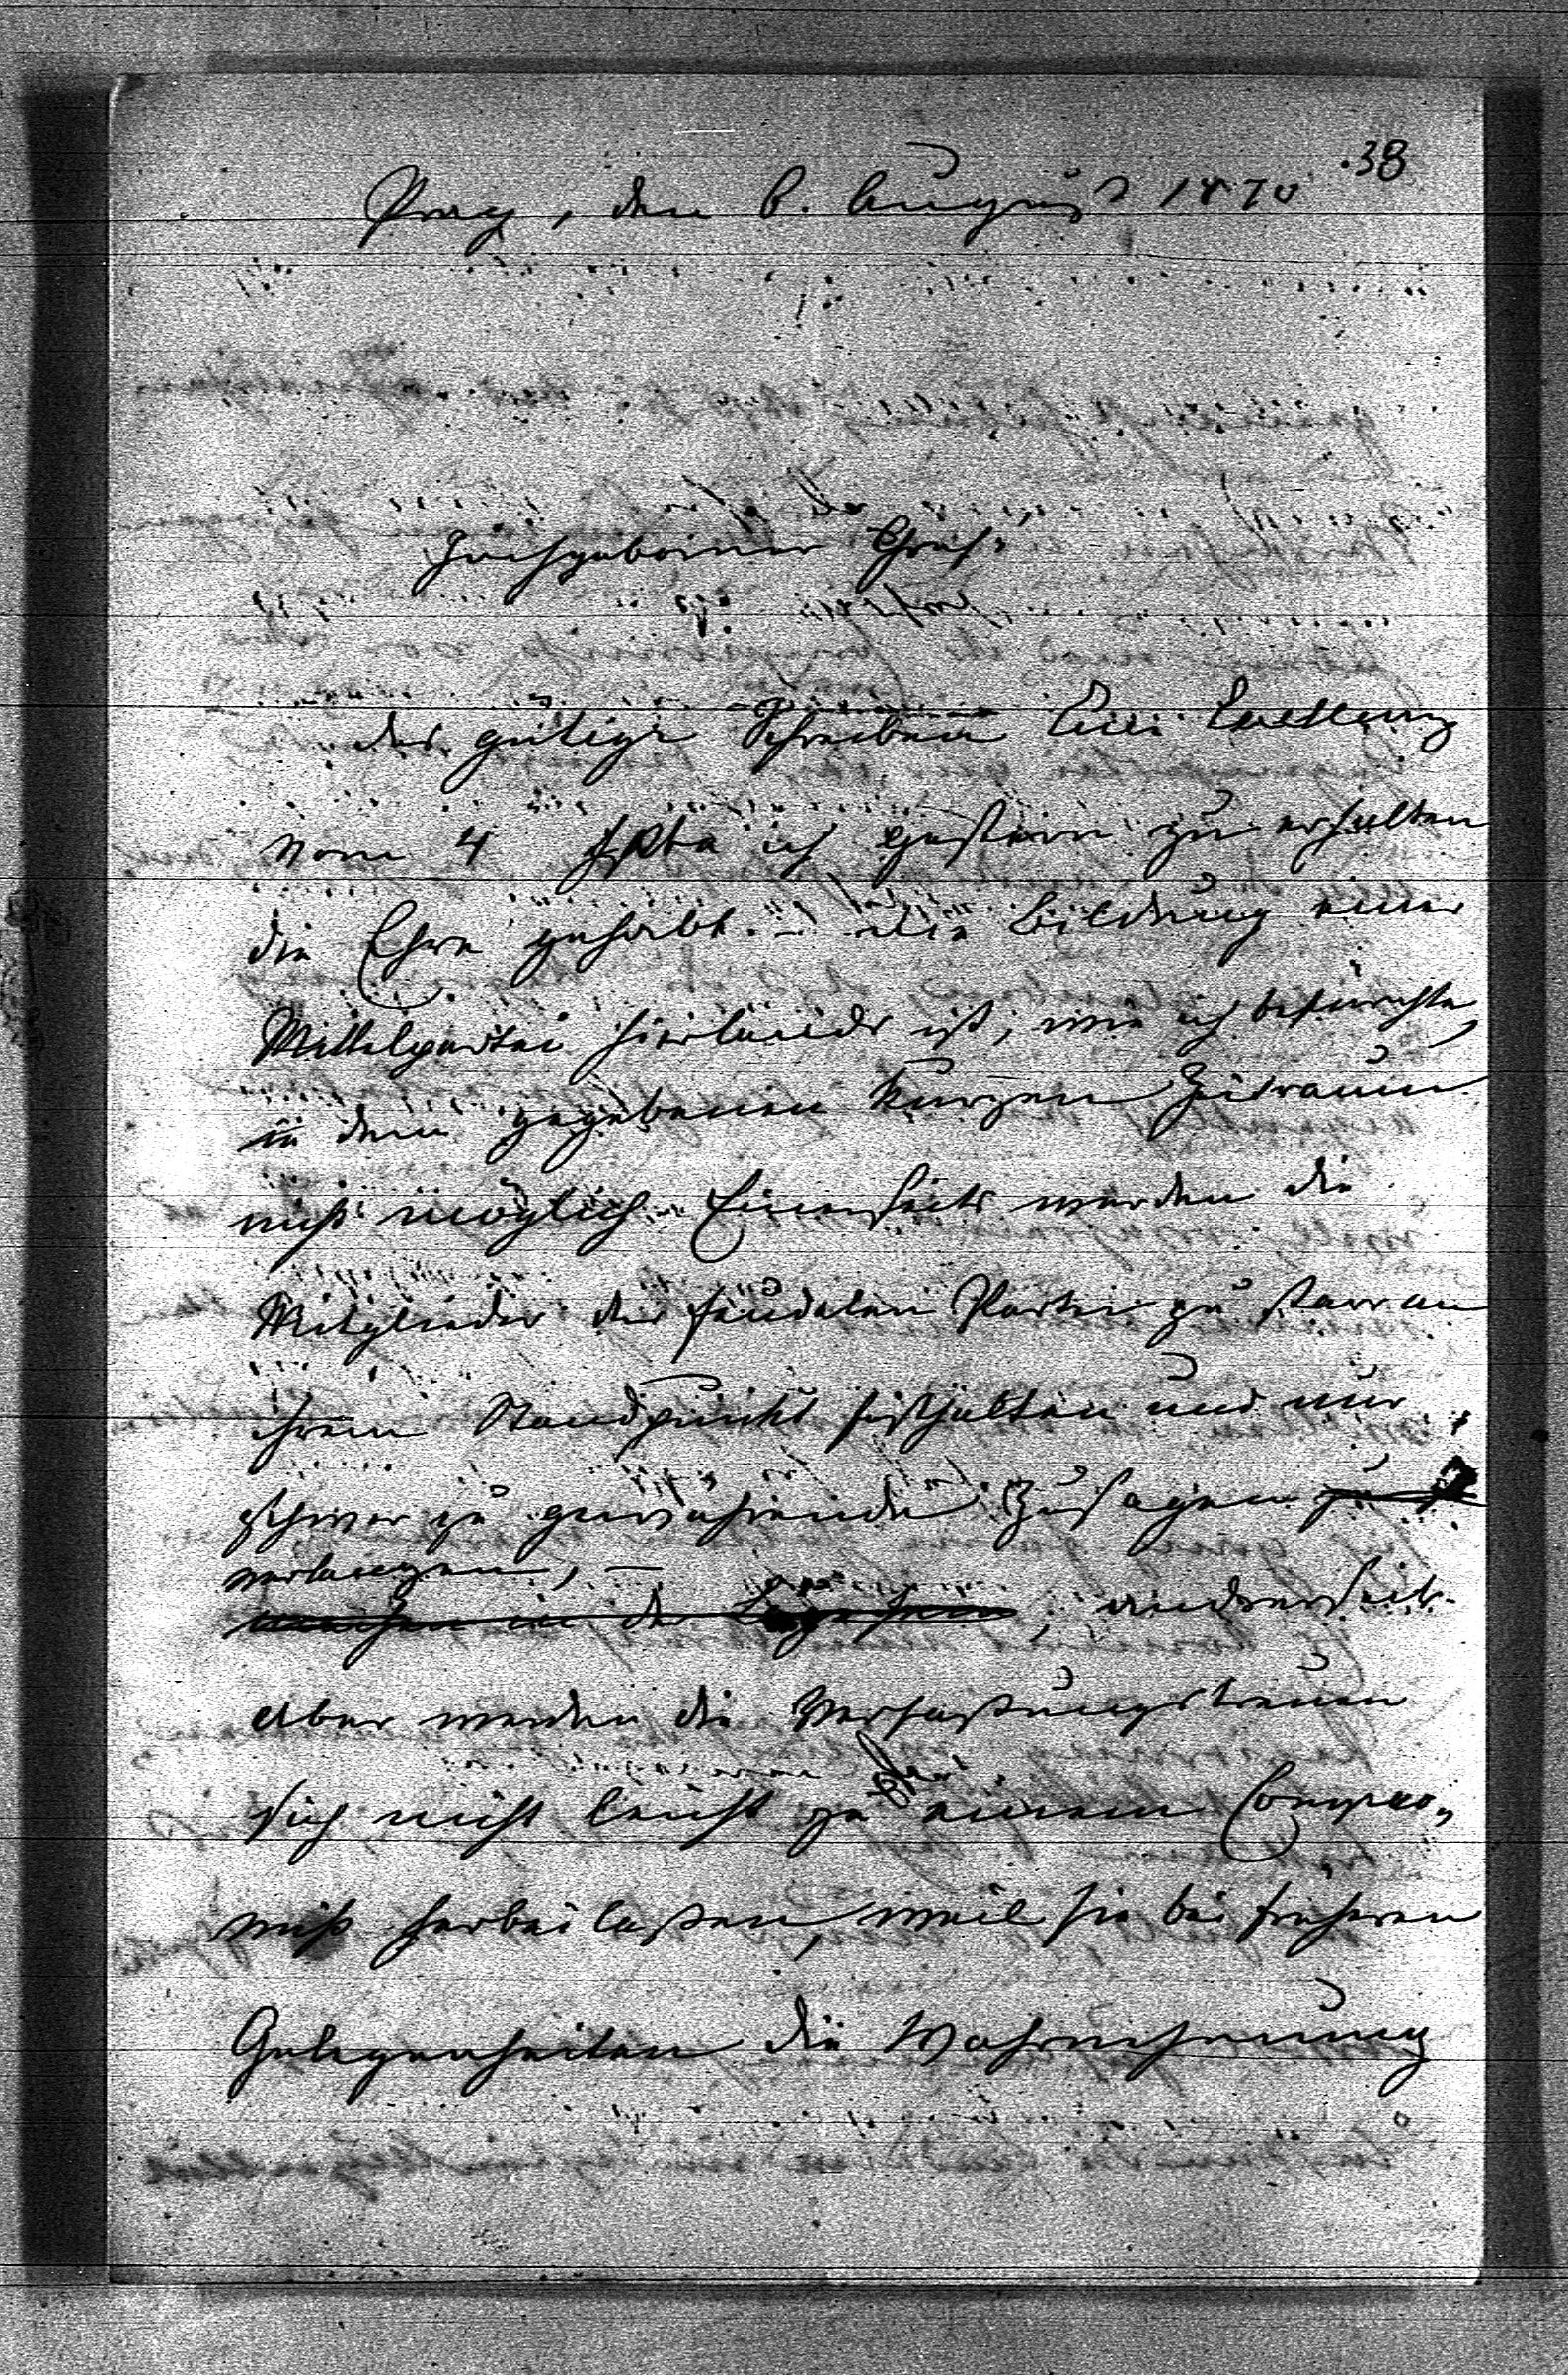 38
Prag, den 6. August 1870
Hochgeborner Graf!
Das gütige Schreiben Euer Exellenz
vom 4 habe ich gestern zu erhalten
die Ehre gehabt. – Die Bildung einer
Mittelpartei hierlands ist, wie ich befürchte,
in dem gegebenen kurzen Zeitraum
nicht möglich. Einerseits werden die
Mitglieder der feudalen Partei zu starr an
ihrem Standpunkt festhalten und nur
schwer zu gewährende Zusagen zu
verlangen, –
machen in der , andrerseits
aber werden die Verfaßungstreuen
sich nicht leicht zu einem Compro-
miß herbei laßen, weil sie bei früheren
Gelegenheiten die Wahrnehmung